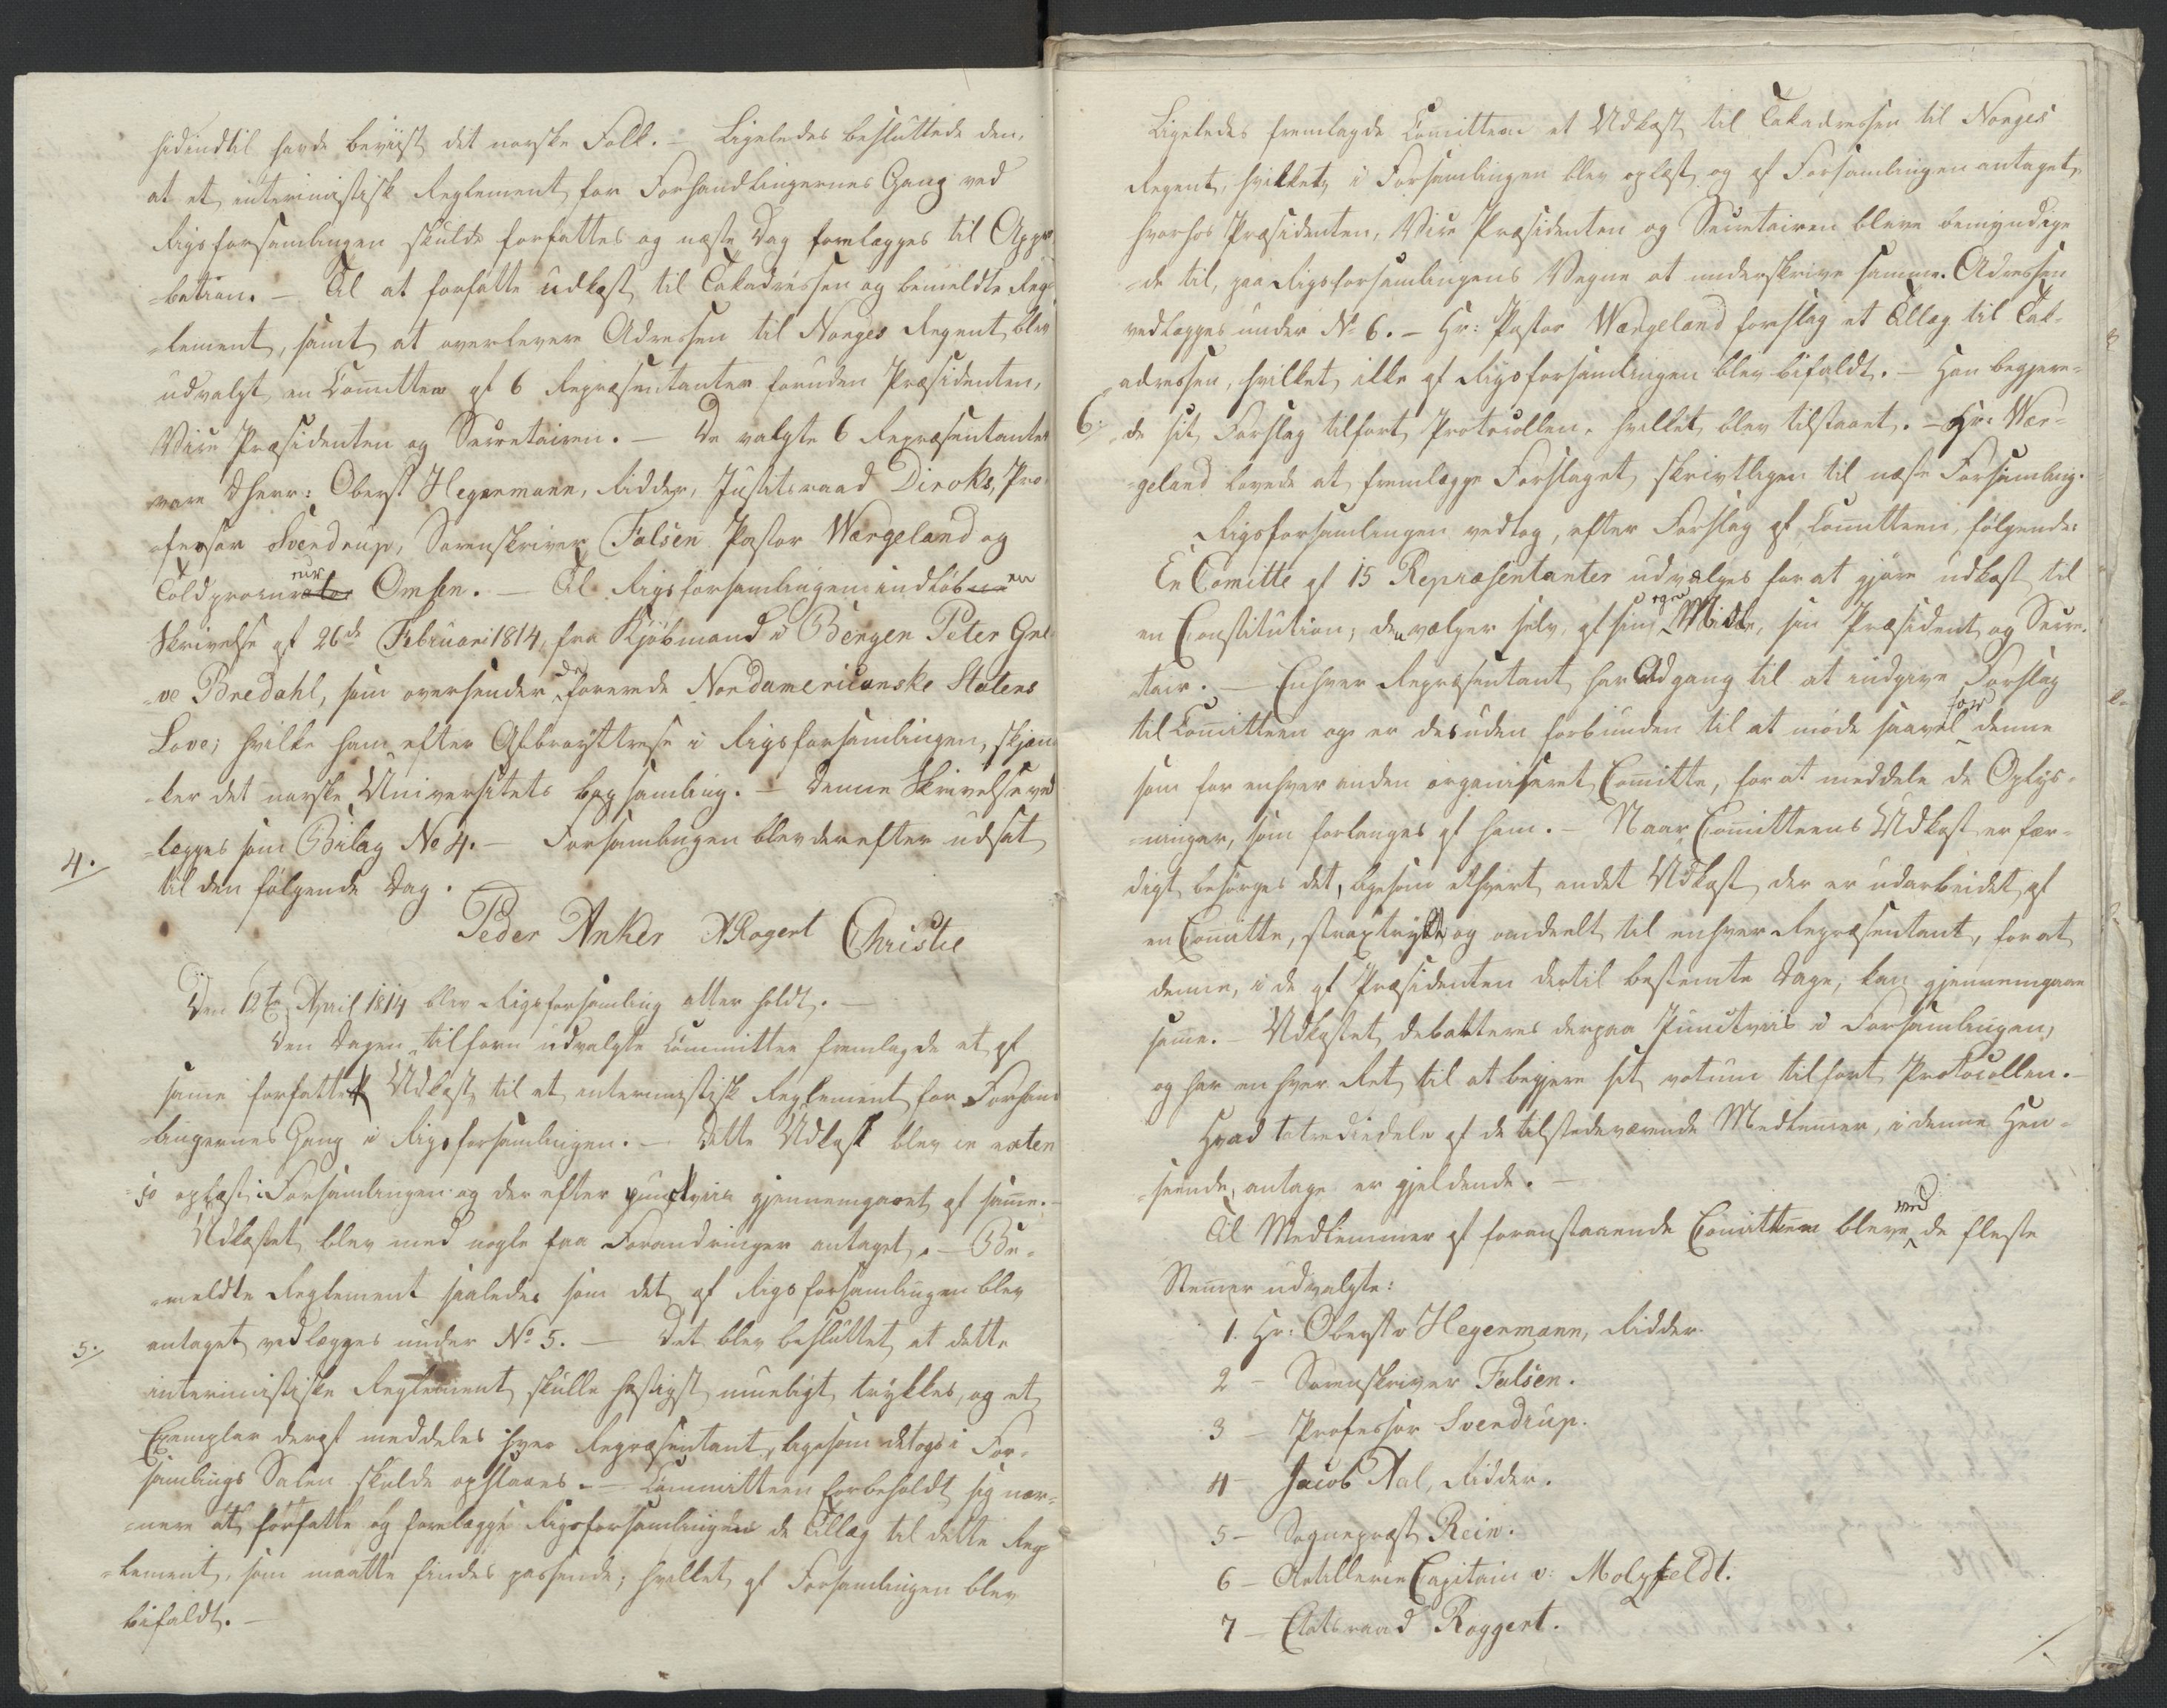 hidindtil havde beviist det norske Folk. — Ligeledes besluttede den,
at et interimistisk Reglement for Forhandlingernes Gang ved
Rigsforsamlingen skulde forfattes og næste Dag forelægges til Appro
-bation. — Til at forfatte Udkast til Takadressen og bemeldte Reg
-lement, samt at overlevere Adressen til Norges Regent blev
udvalgt en Committee af 6 Repræsentanter foruden Præsidenten,
Vice Præsidenten og Secretairen. — De valgte 6 Repræsentanter
vare DHerr: Oberst Hegermann, Ridder, Justitsraad Diroks, Pro-
-fessor Sverdrup, Sorenskriver Falsen Pastor Wergeland og
Toldprocureur Omsen. — Til Rigsforsamlingen indløb en
Skrivelse af 26de Februari 1814, fra Kjøbmand i Bergen Peter Gre
-ve Bredahl, som oversender de forenede Nordamericanske Staters
Love; hvilke han efter Afbenyttelse i Rigsforsamlingen, skjæn
-ker det norske Universitets bogsamling. — Denne Skrivelse ved
4. -lægges som Bilag No 4. — Forsamlingen blev derefter udsat
til den følgende Dag.
Peder Anker ARogert Christie
Den 12te April 1814 blev Rigsforsamling atter holdt. —
Den Dagen tilforn udvalgte Committee fremlagde et af
samme forfattet Udkast til et interimistisk Reglement for Forhand
-lingernes Gang i Rigsforsamlingen. — Dette Udkast blev in exten
-so oplæst i Forsamlingen og derefter punctviis gjennemgaaet af samme. —
Udkastet blev med nogle faa Forandringer antaget. — Be-
-meldte Reglement saaledes som det af Rigsforsamlingen blev
5. antaget vedlægges under No 5. — Det blev besluttet, at dette
interimistiske Reglement skulle hastigst mueligt trykkes, og et
Exemplar deraf meddeles hver Repræsentant, ligesom det ogs i For-
samlings Salen skulde opslaaes. — Committeen forbeholdt sig nær-
-mere at forfatte og forelægge Rigsforsamlingen de Tillæg til dette Reg
-lement, som maatte findes passende; hvilket af Forsamlingen blev
bifaldt. —
Ligeledes fremlagde Comitteen et Udkast til Takadressen til Norges
Regent, hvilket i Forsamlingen blev oplæst og af Forsamlingen antaget,
hvorhos Præsidenten, Vice Præsidenten og Secretairen bleve bemyndige
-de til, paa Rigsforsamlingens Vegne at underskrive samme. Adressen
vedlægges under No 6. — Hr: Pastor Wergeland forslog et Tillæg til Tak-
adressen, hvilket ikke af Rigsforsamlingen blev bifaldt. — Han begjere-
6. -de sit Forslag tilført Protocollen, hvilket blev tilstaaet. — Hr: Wer-
-geland lovede at fremlægge Forslaget skrivtligen til næste Forsamling.
Rigsforsamlingen vedtog, efter Forslag af Comitteen, følgende:
En Comitte af 15 Repræsentanter udvælges for at gjøre udkast til
en Constitution; den vælger selv, af sin egen Midte, sin Præsident og Secre-
tair. — Enhver Repræsentant har Adgang til at indgive Forslag
til Comitteen og er desuden forbunden til at møde saavel for denne
som for enhver anden organiseret Comitte, for at meddele de Oplys-
-ninger, som forlanges af ham. — Naar Comitteens Udkast er fær-
digt besørges det, ligesom ethvert andet Udkast der er udarbeidet af
en Comitte, strax trykt og omdeelt til enhver Repræsentant, for at
denne, i de af Præsidenten dertil bestemte Dage, kan gjennemgaae
samme. — Udkastet debatteres derpaa Punctviis i Forsamlingen,
og har enhver Ret til at begjere sit votum tilført Protocollen. —
Hvad totrediedele af de tilstedeværende Medlemmer, i denne Hen-
-seende, antage er gjeldende. —
Til Medlemmer af foranstaaende Comitteen bleve ved de fleste
Stemmer udvalgte:
1. Hr: Oberst v Hegermann, Ridder.
2 — Sorenskriver Falsen.
3 — Professor Sverdrup.
4 — Jacob Aal, Ridder.
5 — Sognepræst Rein.
6 — Artillerie Capitain v: Motzfeldt.
7 — Etatsraad Roggert.